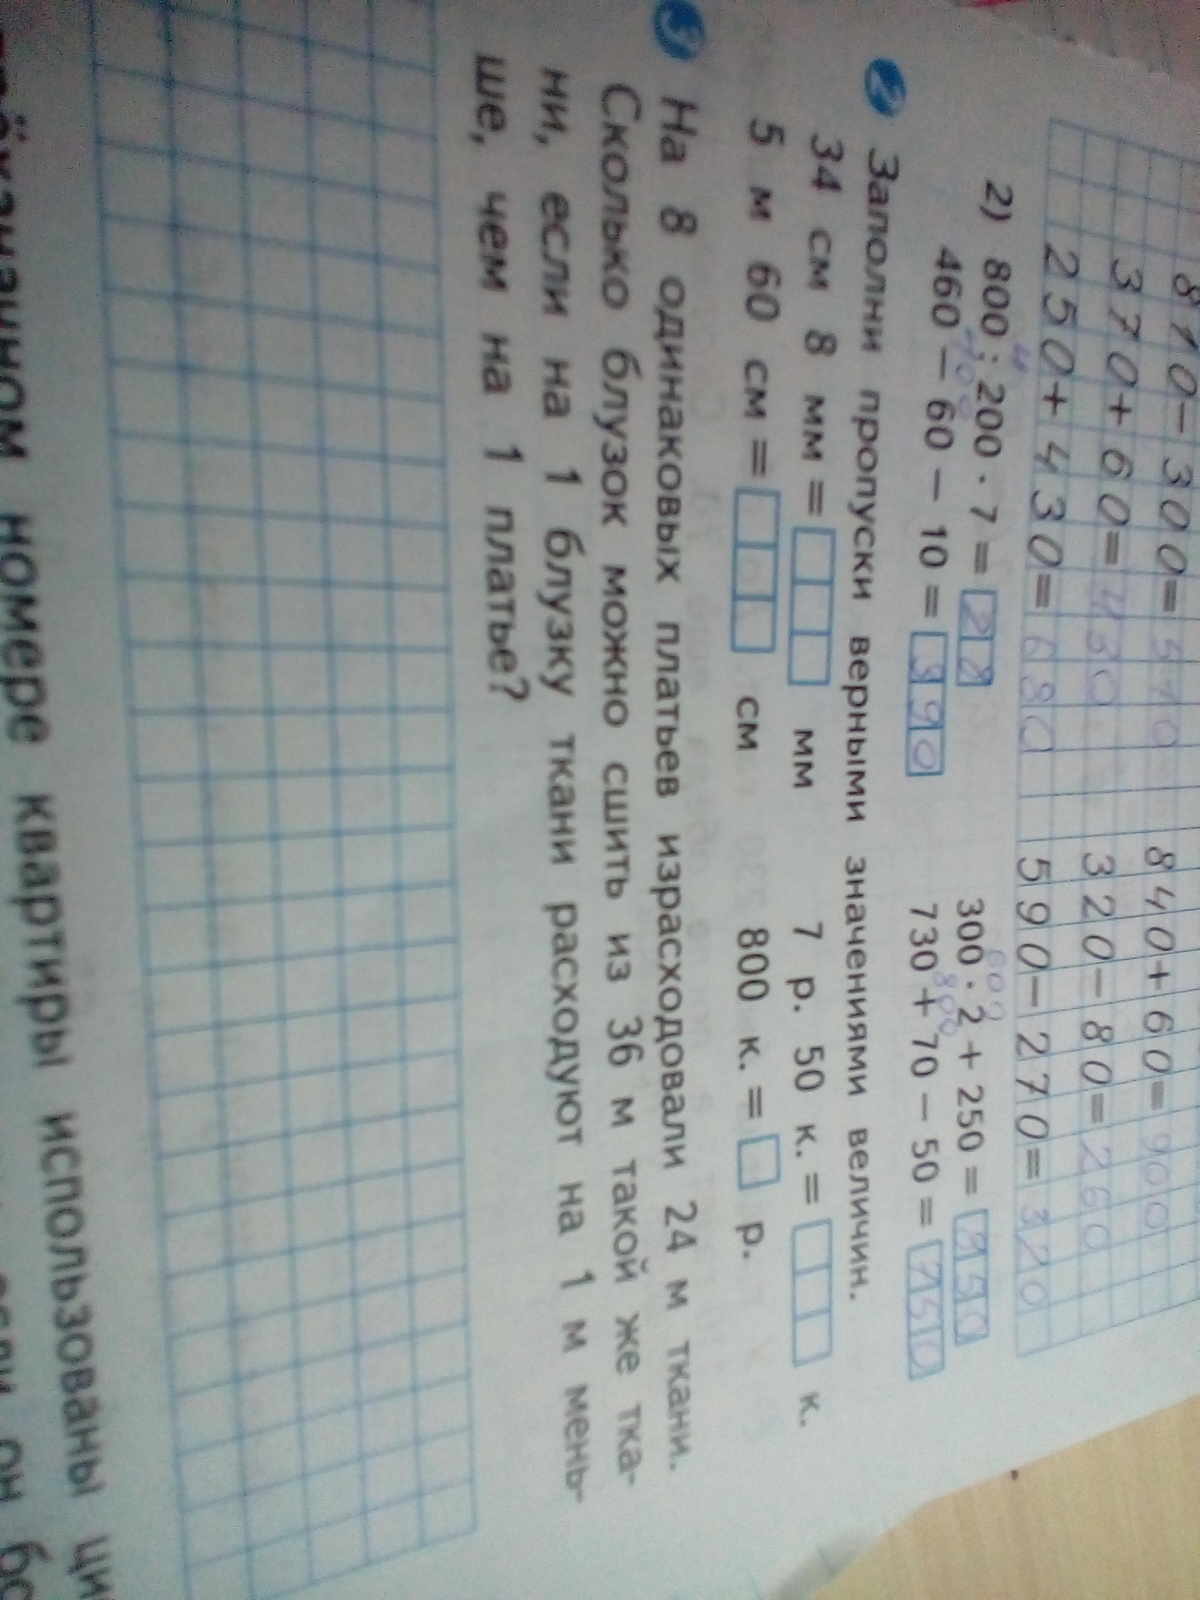 810-300=510 840+60=900
370+60=430 320-80=260
250+430=680 590-270=320
4 600
2) 800 : 200 · 7 = 28 300 · 2 + 250 = 850
400 800
460 – 60 – 10 = 390 730 + 70 – 50 = 750
2 Заполни пропуски верными значениями величин.
34 см 8 мм = мм 7 р. 50 к. = к.
5 м 60 см = см 800 к. = р.
3 На 8 одинаковых платьев израсходовали 24 м ткани.
Сколько блузок можно сшить из 36 м такой же тка-
ни, если на 1 блузку ткани расходуют на 1 м мень-
ше, чем на 1 платье?
номере квартиры использованы